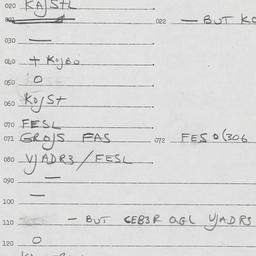 020 KAJStL
022 — BUT KO
030 —
040 + KOJBO
050 O
060 KOJSt
070 FESL
071 GROJS FAS 072 FES O(306
080 VJADR3/FESL
090 —
100 —
110 — BUT CEB3R OGL VJADR3
120 O